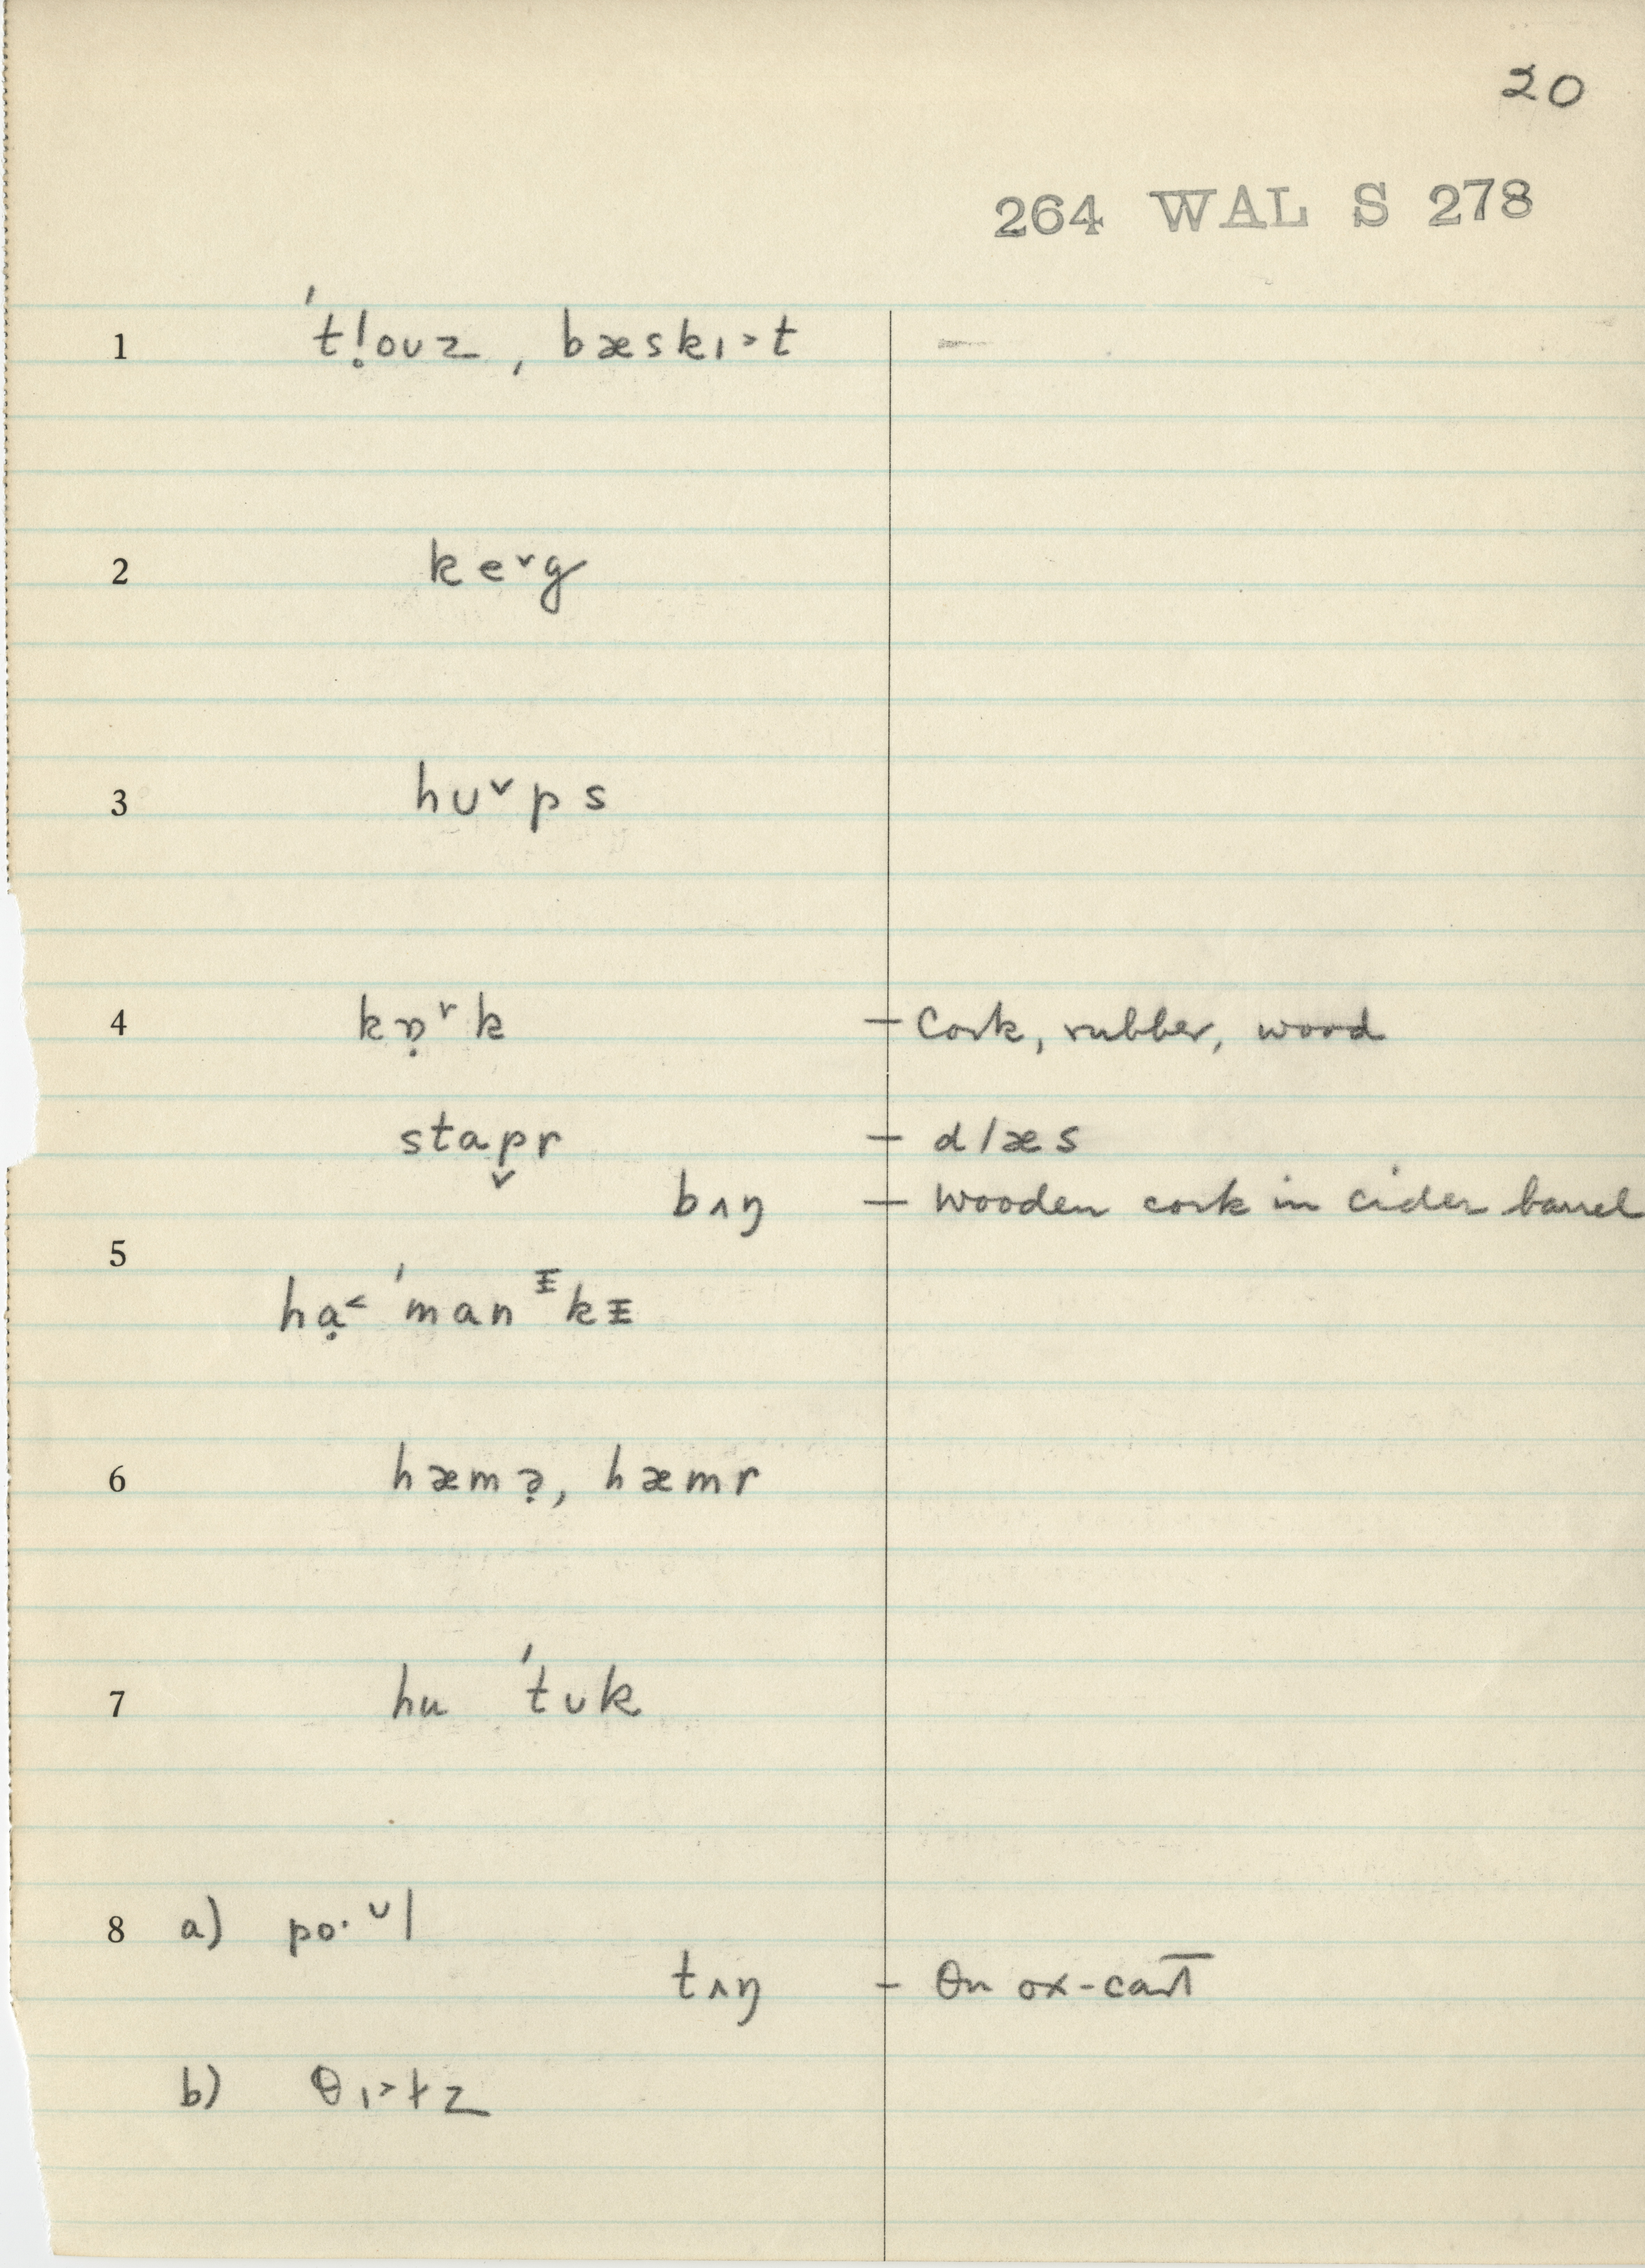 20
264 WAL S 278
1 ˈtḷoʊz, bæskɪ˃t
2 ke˅g
3 hʊ˅ps
4 kɒ̣˅k – Cork, rubber, wood
stap̬r – glæs
bʌŋ – Wooden cork in cider barrel
5 hạ˂ ˈmanᵻkᵻ
6 hæmə̣, hæmr
7 hu ˈtʊk
8 a) po·ᶷl
tʌŋ – On ox-cart
b) θɪ˃ɫz